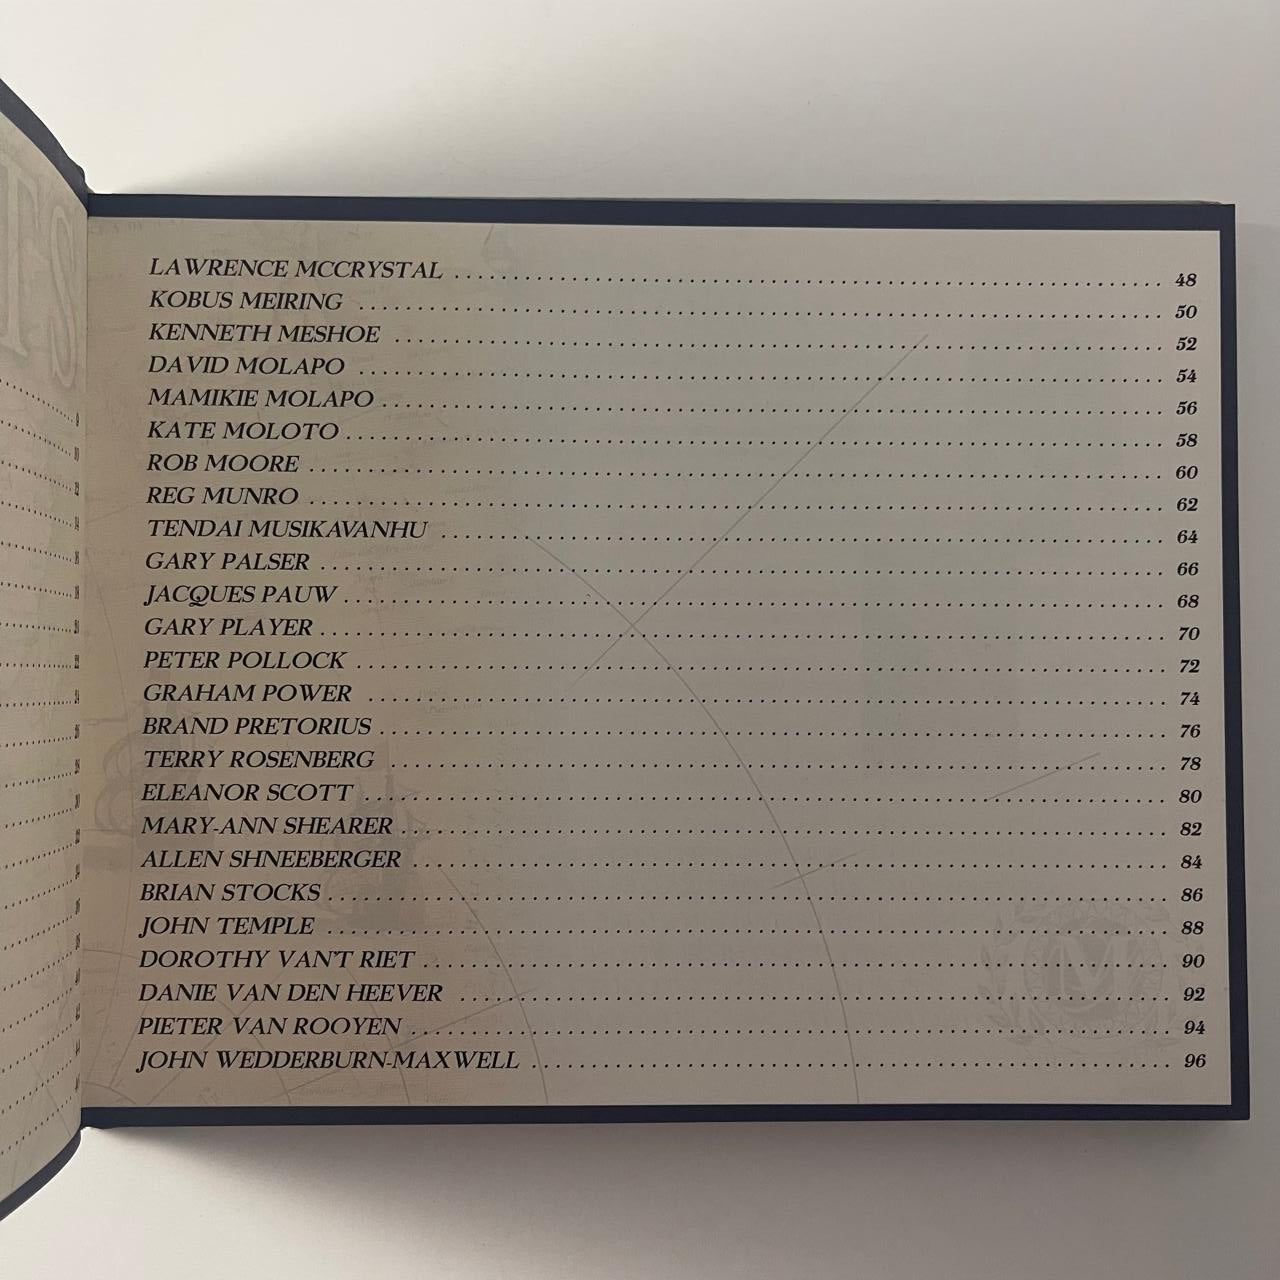 LAWRENCE MCCRYSTAL 48
KOBUS MEIRING 50
KENNETH MESHOE 52
DAVID MOLAPO 54
MAMIKIE MOLAPO 56
KATE MOLOTO 58
ROB MOORE 60
REG MUNRO 62
TENDAI MUSIKAVANHU 64
GARY PALSER 66
JACQUES PAUW 68
GARY PLAYER 70
PETER POLLOCK 72
GRAHAM POWER 74
BRAND PRETORIUS 76
TERRY ROSENBERG 78
ELEANOR SCOTT 80
MARY-ANN SHEARER 82
ALLEN SHNEEBERGER 84
BRIAN STOCKS 86
JOHN TEMPLE 88
DOROTHY VAN'T RIET 90
DANIE VAN DEN HEEVER 92
PIETER VAN ROOYEN 94
JOHN WEDDERBURN-MAXWELL 96